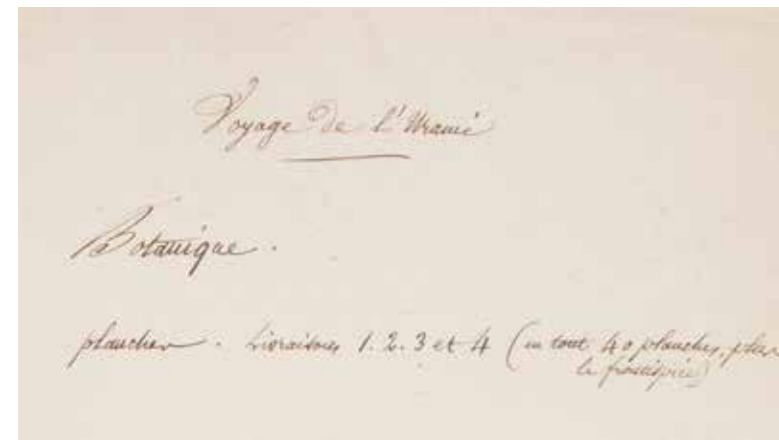 Voyage de l'Uranie
Botanique.
planches. Livraisons 1. 2. 3 et 4 (en tout 40 planches, plus
le frontispice)